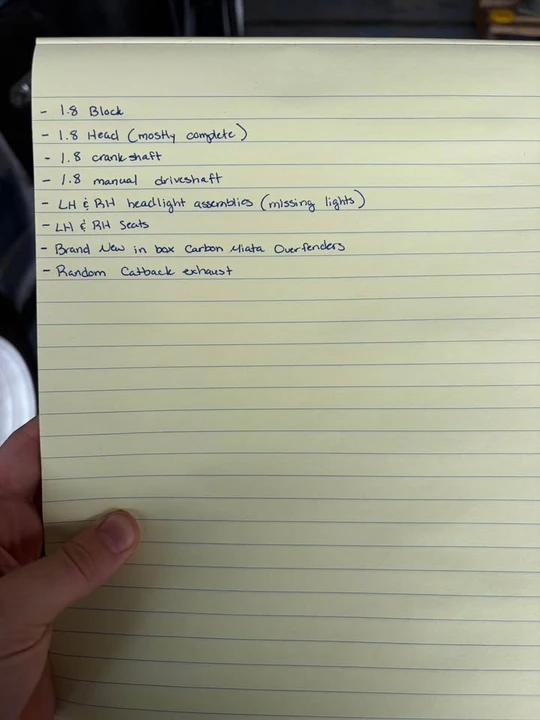 - 1.8 Block
- 1.8 Head (mostly complete)
- 1.8 crankshaft
- 1.8 manual driveshaft
- LH & RH headlight assemblies (missing lights)
- LH & RH Seats
- Brand New in box Carbon Miata Overfenders
- Random Catback exhaust